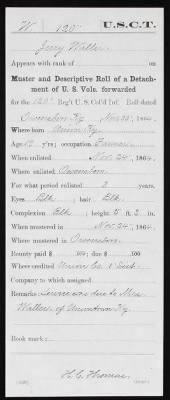 W. 120" U.S.C.T.
Jerry Waller
Appears with rank of
Muster and Descriptive Roll of a Detach-
ment of U. S. Vols. forwarded
for the 120" Reg't U. S. Col'd Inf. Roll dated
Owensboro Ky Nov. 30", 1864.
Where born Union Ky.
Age yr's; occupation Farmer
When enlisted Nov. 24", 1864.
Where enlisted Owensboro.
For what period enlisted 3 years.
Eyes Blk ; hair Blk.
Complexion Blk ; height 5 ft. 2 in.
When mustered in Nov. 24", 1864.
Where mustered in Owensboro.
Bounty paid $ 100; due $ 100
Where credited Union Co. 1 Dist.
Company to which assigned
Remarks: Service due to Mrs.
Waller of Uniontown Ky.
Book mark:
H. C. Thomas